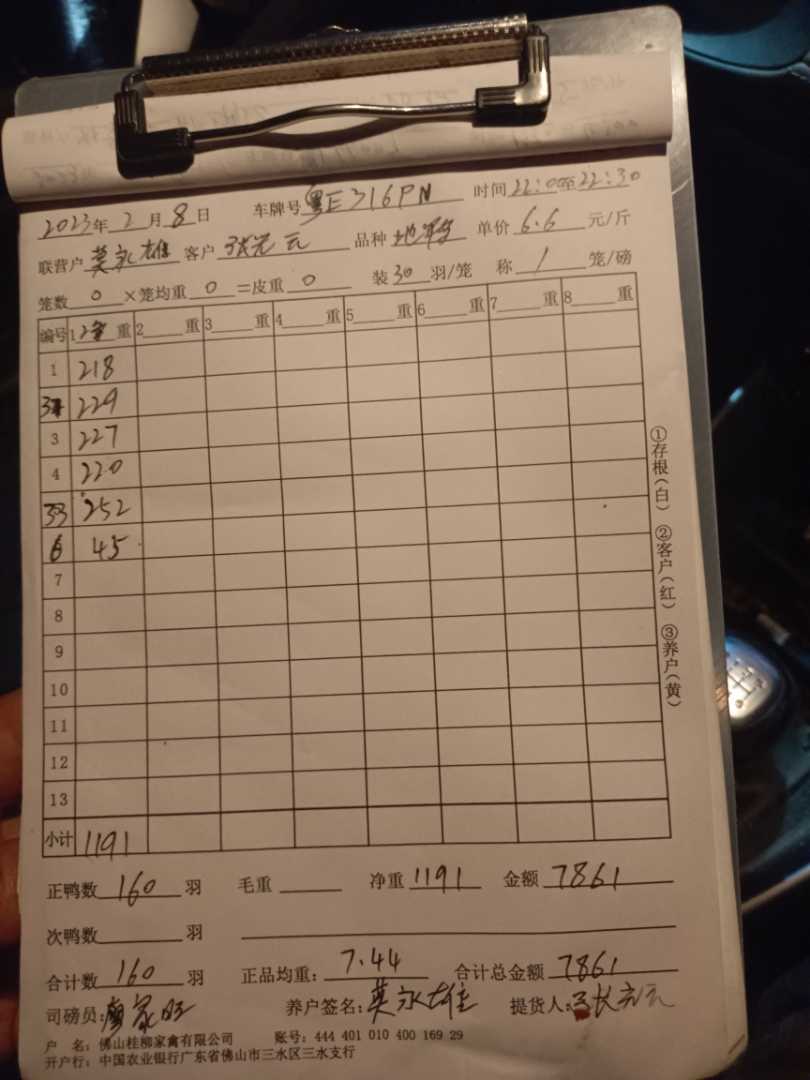 2023年2月8日 车牌号粤E316PN 时间22:00至22:30
联营户莫永雄 客户张元云 品种 单价6.6元/斤
笼数0×笼均重0=皮重0 装30羽/笼 称1笼/磅
编号 1 重 2 重 3 重 4 重 5 重 6 重 7 重 8 重
1 218
229
3 227
4 220
33 252
6 45
7
8
9
10
11
12
13
小计 1191
①存根(白) ②客户(红) ③养户(黄)
正鸭数160羽 毛重 净重1191 金额7861
次鸭数 羽
合计数160羽 正品均重:7.44 合计总金额7861
司磅员: 养户签名:莫永雄 提货人:张元云
户 名:佛山桂柳家禽有限公司 账号:444 401 010 400 169 29
开户行:中国农业银行广东省佛山市三水区三水支行